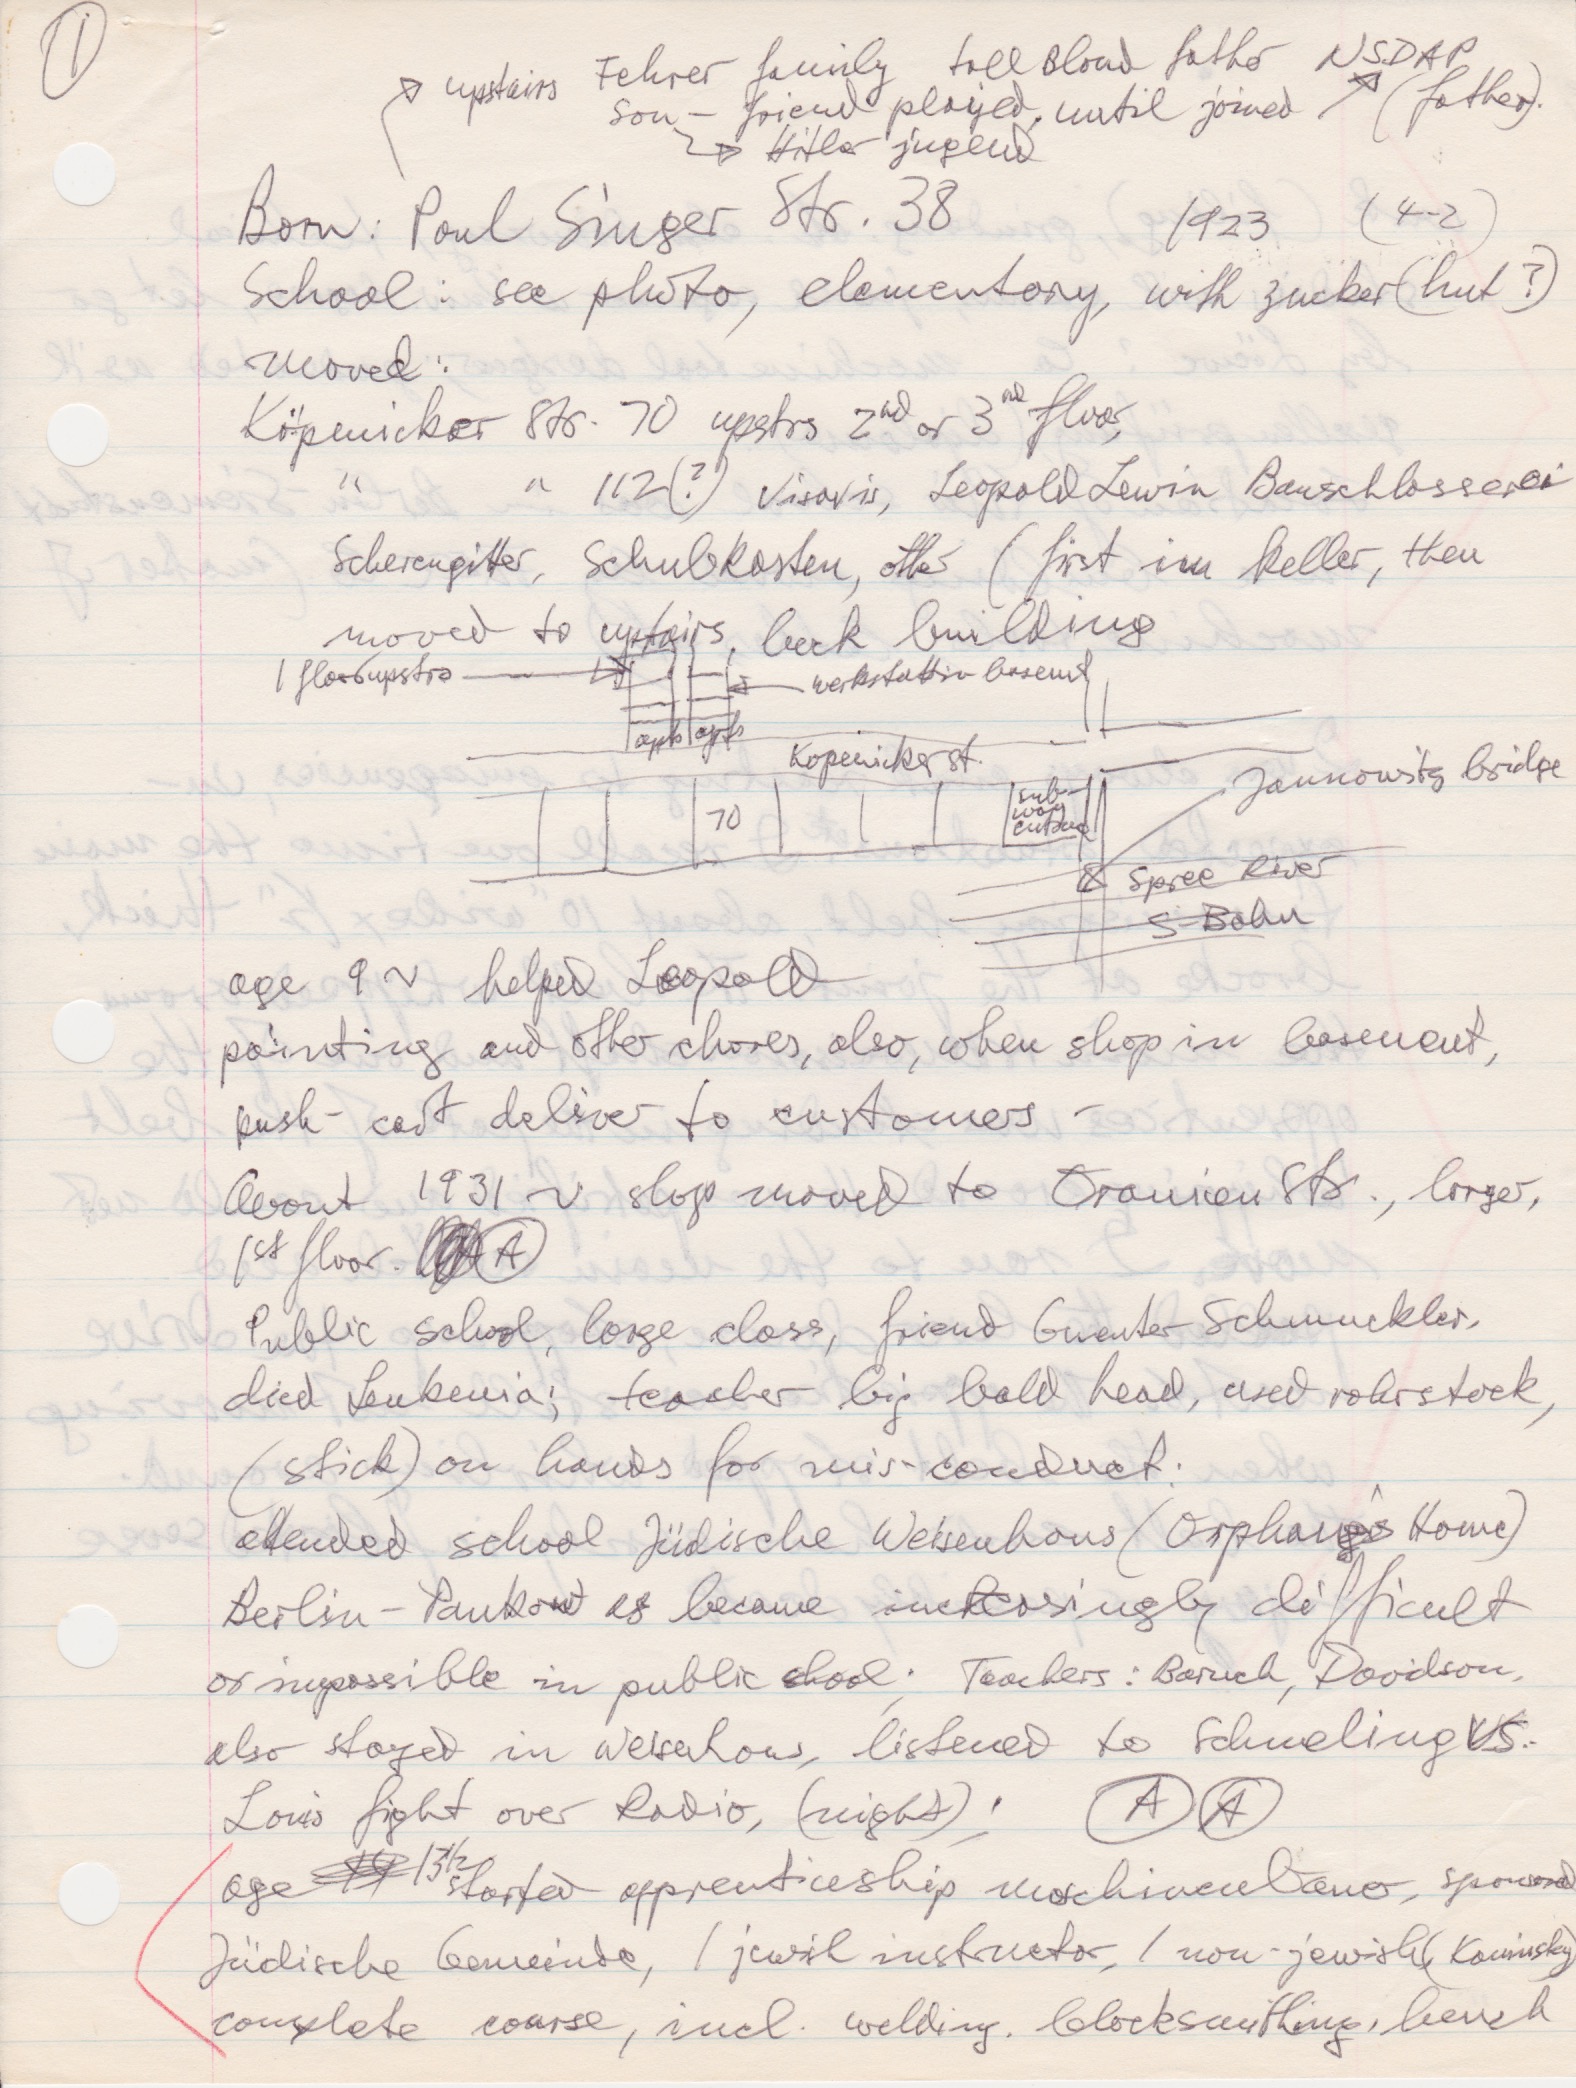 1
upstairs Fehrer family tall Blond father NSDAP
son – friend played, until joined (father).
Hitler jugend
Born: Paul Singer Str. 38 1923 (4-2)
School: see photo, elementary, with zucker (hut?)
moved:
Köpenicker Str. 70 upstrs 2nd or 3nd floor,
" " 112(?) visavis, Leopold Lewin Bauschlosserei
Scherengitter, Schubkasten, other (first im keller, then
moved to upstairs, back building
1 floor upstrs werkstatt in basemt
apts apts
Kopenicker st.
70 sub-
way
entrance
Jannowitz bridge
Spree River
S-Bahn
age 9 ~ helped Leopold
painting and other chores, also, when shop in basement,
push-cart deliver to customers –
About 1931 ~ shop moved to Oranien Str., larger,
1st floor. A
Public school, large class, friend Guenter Schmuckler,
died Leukemia; teacher big bald head, used rohrstock,
(stick) on hands for mis-conduct.
attended school Jüdische Weisenhaus (Orphans Home)
Berlin-Pankow as became increasingly difficult
or impossible in public chool; Teachers: Baruch, Davidson,
also stayed in Weisenhaus, listened to Schmeling VS.
Louis fight over Radio, (night); A A
age 13½ started apprenticeship maschinenbauer, sponsored
Jüdische Gemeinde, 1 jewish instructor, 1 non-jewish (Kaminsky)
complete course, incl. welding, blacksmithing, bench